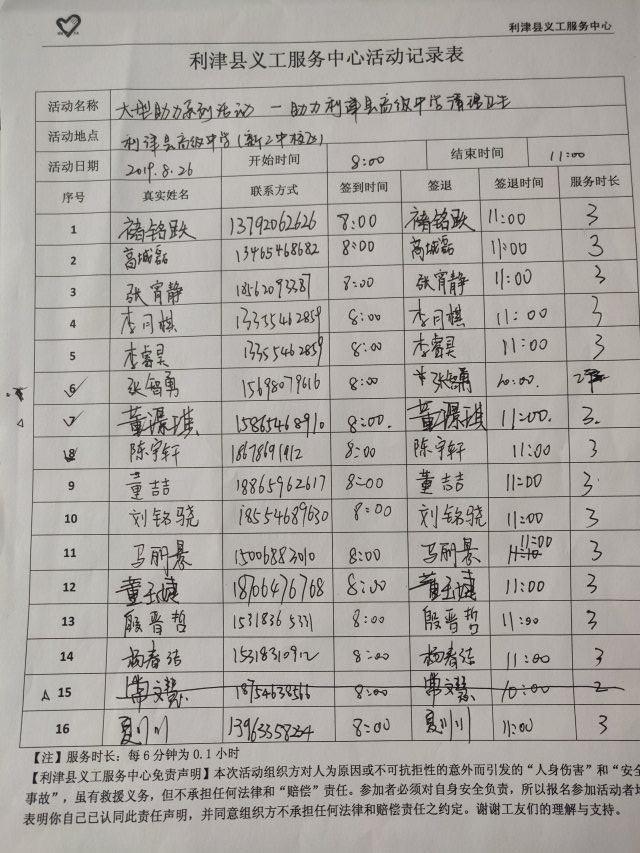 利津县义工服务中心
利津县义工服务中心活动记录表
活动名称 大型助力系列活动 — 助力利津县高级中学清理卫生
活动地点 利津县高级中学(新二中校区)
活动日期 2019.8.26 开始时间 8:00 结束时间 11:00
序号 真实姓名 联系方式 签到时间 签退 签退时间 服务时长
1 褚铭跃 13792062626 8:00 褚铭跃 11:00 3
2 高城磊 13465468682 8:00 高城磊 11:00 3
3 张宵静 18562093387 8:00 张宵静 11:00 3
4 李同棋 13355462859 8:00 李同棋 11:00 3
5 李睿昊 13355462859 8:00 李睿昊 11:00 3
6 张智勇 15698079616 8:00 张智勇 10:00. 2
7 董瀑琪 15865468910 8:00. 董瀑琪 11:00. 3.
8 陈宇轩 18678691912 8:00 陈宇轩 11:00 3
9 董吉吉 18865962617 8:00 董吉吉 11:00 3
10 刘铭骁 18554689630 8:00 刘铭骁 11:00 3
11 马丽景 15006883010 8:00 马丽景 11:00 3
12 董玉婕 18766476768 8:00 董玉婕 11:00 3
13 殷晋哲 15318365331 8:00 殷晋哲 11:00 3
14 杨春结 15318310912 8:00 杨春结 11:00 3
15 18754638566 8:00 10:00 2
16 夏川川 13963358234 8:00 夏川川 11:00 3
【注】服务时长：每6分钟为0.1小时
【利津县义工服务中心免责声明】本次活动组织方对人为原因或不可抗拒性的意外而引发的“人身伤害”和“安全
事故”，虽有救援义务，但不承担任何法律和“赔偿”责任。参加者必须对自身安全负责，所以报名参加活动者均
表明你自己已认同此责任声明，并同意组织方不承担任何法律和赔偿责任之约定。谢谢工友们的理解与支持。